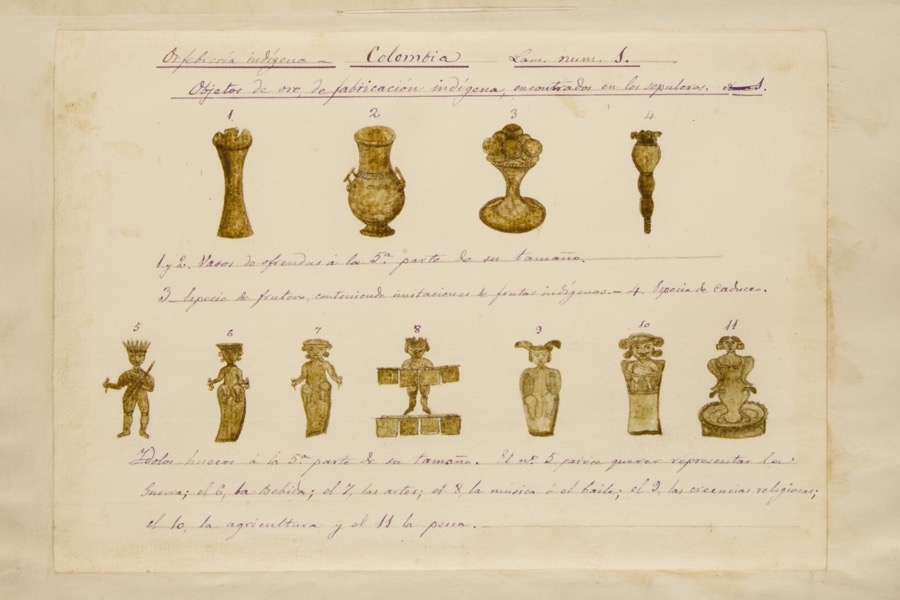 Orfebrería indígena — Colombia Lam. num. 1.
Objetos de oro, de fabricación indígena, encontrados en los sepulcros.
1 2 3 4
1 y 2. Vasos de ofrendas á la 5.ª parte de su tamaño.
3 Especie de frutera, conteniendo imitaciones de frutas indígenas. — 4. Especie de caduceo.
5 6 7 8 9 10 11
Idolos huecos á la 5.ª parte de su tamaño. El nº. 5, parece querer representar la
Guerra; el 6, la Bebida; el 7, las artes; el 8, la música ó el baile; el 9, las creencias religiosas;
el 10, la agricultura y el 11 la pesca.